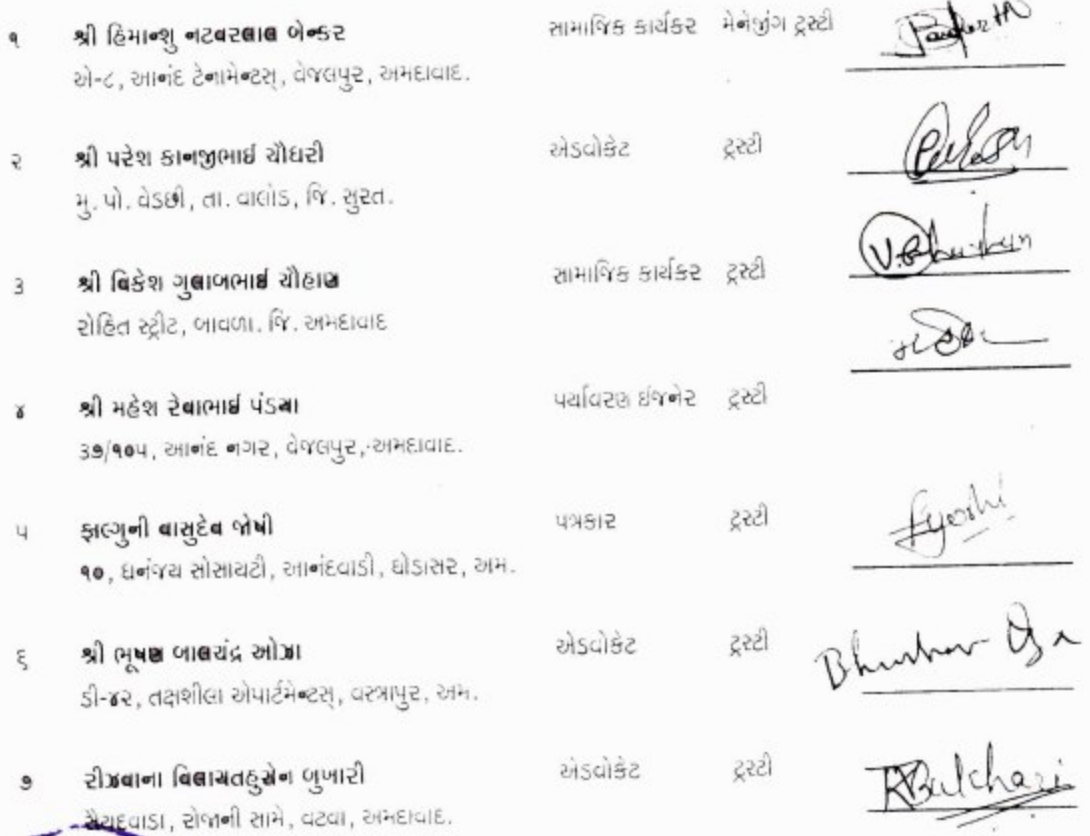 ૧ શ્રી હિમાન્શુ નટવરલાલ બેન્કર સામાજિક કાર્યકર મેનેજીંગ ટ્રસ્ટી
એ-૮, આનંદ ટેનામેન્ટસ્, વેજલપુર, અમદાવાદ.
૨ શ્રી પરેશ કાનજીભાઈ ચૌધરી એડવોકેટ ટ્રસ્ટી
મુ. પો. વેડછી, તા. વાલોડ, જિ. સુરત.
૩ શ્રી વિકેશ ગુલાબભાઈ ચૌહાણ સામાજિક કાર્યકર ટ્રસ્ટી
V.Bhuihan
રોહિત સ્ટ્રીટ, બાવળા. જિ. અમદાવાદ
૪ શ્રી મહેશ રેવાભાઈ પંડયા પર્યાવરણ ઈજનેર ટ્રસ્ટી
૩૭/૧૦૫, આનંદ નગર, વેજલપુર, અમદાવાદ.
૫ ફાલ્ગુની વાસુદેવ જોષી પત્રકાર ટ્રસ્ટી Fjoshi
૧૦, ધનંજય સોસાયટી, આનંદવાડી, ઘોડાસર, અમ.
૬ શ્રી ભૂષણ બાલચંદ્ર ઓઝા એડવોકેટ ટ્રસ્ટી Bhushan Oza
ડી-૪૨, તક્ષશીલા એપાર્ટમેન્ટસ્, વસ્ત્રાપુર, અમ.
૭ રીઝવાના વિલાયતહુસેન બુખારી એડવોકેટ ટ્રસ્ટી RBukhari
સૈયદવાડા, રોજાની સામે, વટવા, અમદાવાદ.